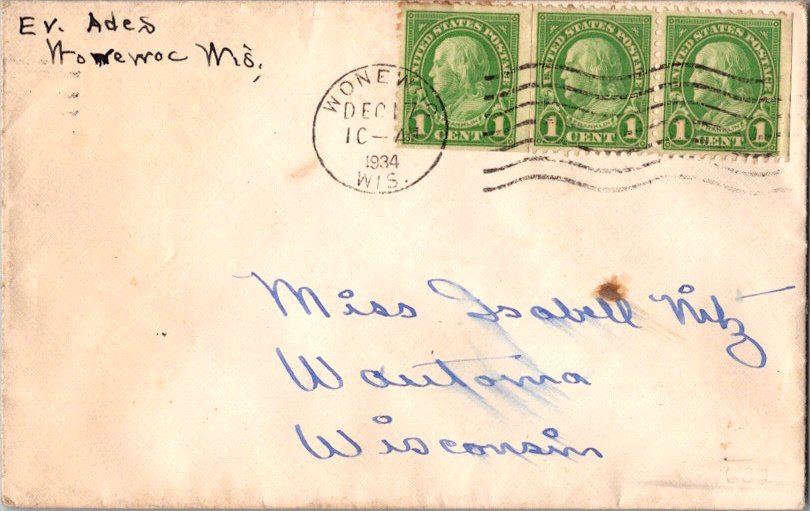 Ev. Ades
Wonewoc Wis.
UNITED STATES POSTAGE
FRANKLIN
1 CENT 1
UNITED STATES POSTAGE
FRANKLIN
1 CENT 1
UNITED STATES POSTAGE
FRANKLIN
1 CENT 1
WONEW
DEC 1
1934
WIS.
Miss Isabell Nitz
Wautoma
Wisconsin